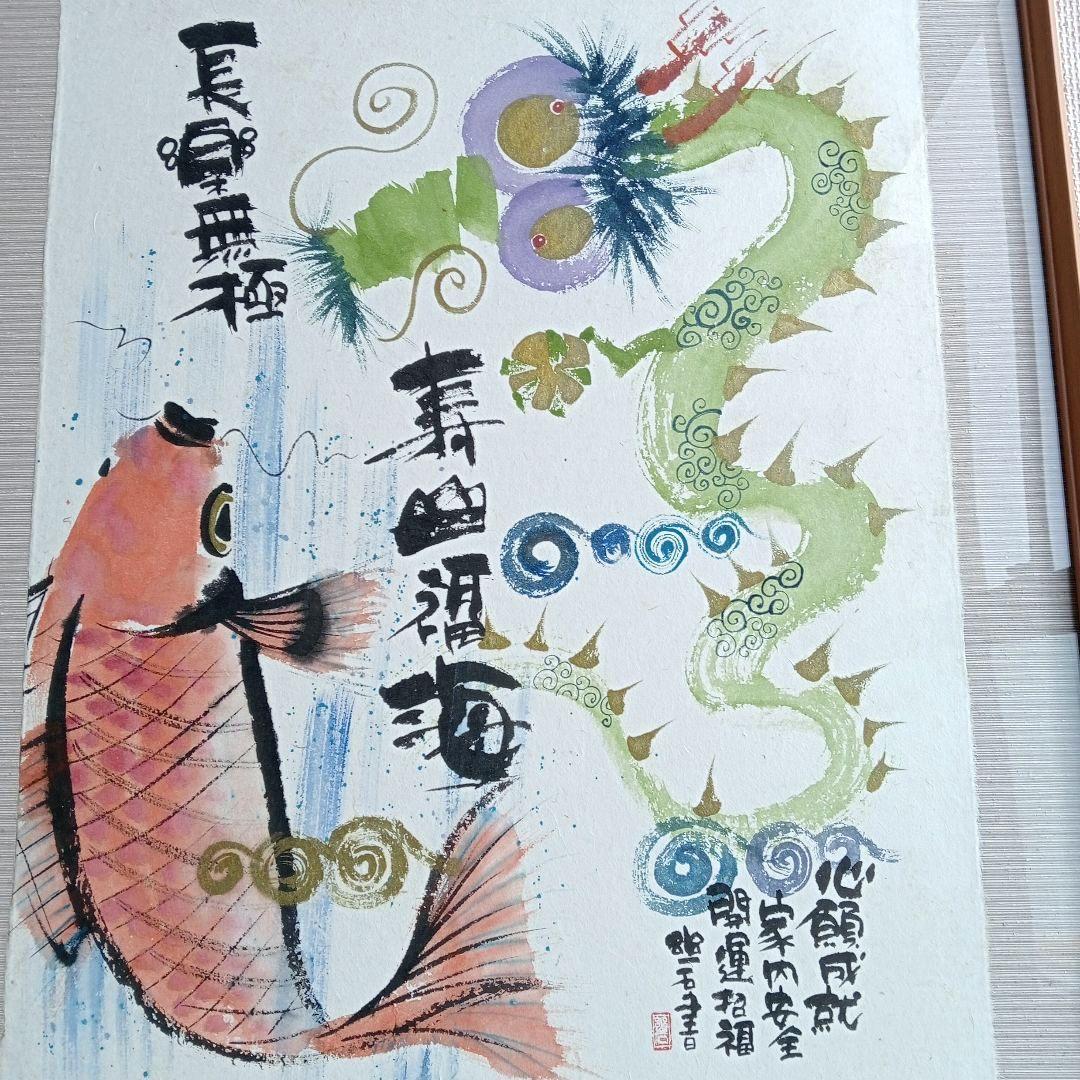 長樂無極
寿山福海
心願成就
家内安全
開運招福